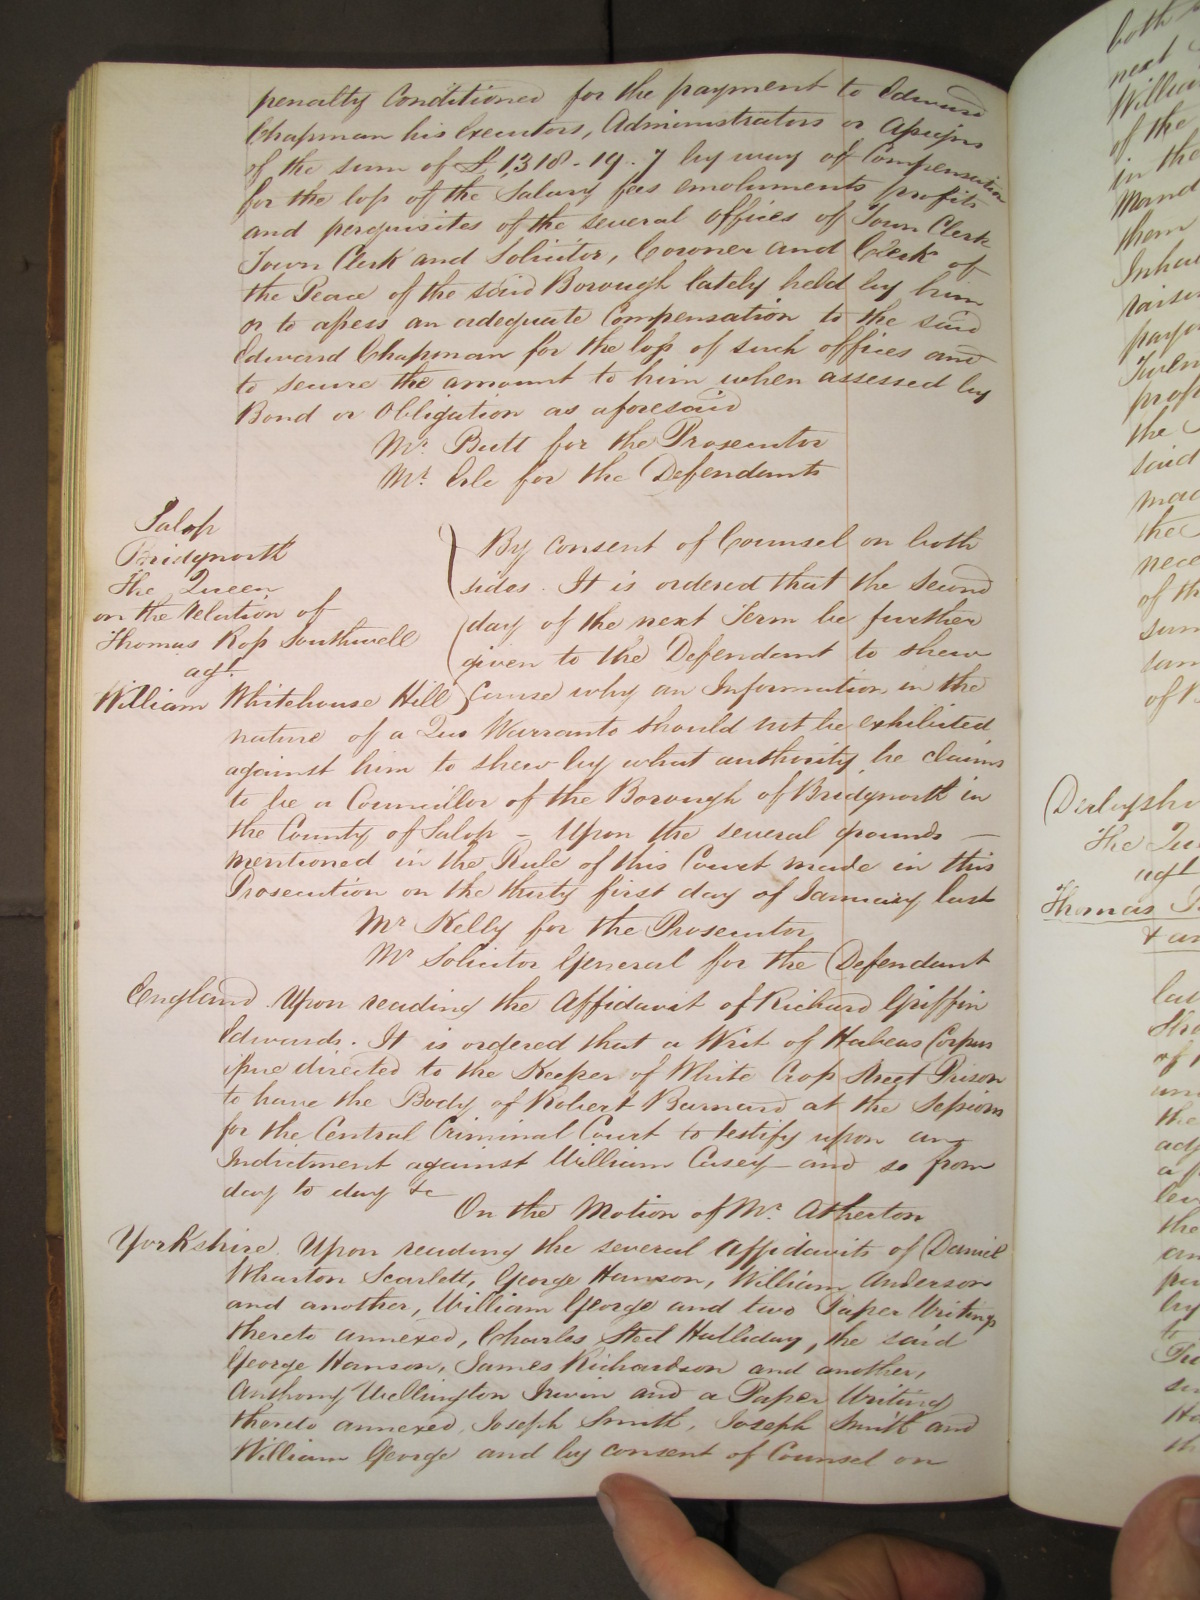 penalty Conditioned for the payment to Edward
Chapman his Executors, Administrators or Assigns
of the sum of £1,318-19..7 by way of Compensation
for the loss of the Salary fees emoluments profits
and perquisites of the several offices of Town Clerk
Town Clerk and Solicitor, Coroner and Clerk of
the Peace of the said Borough lately held by him
or to assess an adequate Compensation to the said
Edward Chapman for the loss of such offices and
to secure the amount to him when assessed by
Bond or Obligation as aforesaid
Mr. Butt for the Prosecutor
Mr. Erle for the Defendants
Salop
Bridgnorth
The Queen
on the relation of
Thomas Ross Southwell
agt.
William Whitehouse Hill
By consent of Counsel on both
sides. It is ordered that the second
day of the next Term be further
given to the Defendant to shew
Cause why an Information in the
nature of a Quo Warranto should not be exhibited
against him to shew by what authority he claims
to be a Councillor of the Borough of Bridgnorth in
the County of Salop – Upon the several grounds –
mentioned in the Rule of this Court made in this
Prosecution on the thirty first day of January last
Mr Kelly for the Prosecutor
Mr Solicitor General for the Defendant
England. Upon reading the Affidavit of Richard Griffin
Edwards. It is ordered that a Writ of Habeas Corpus
issue directed to the Keeper of White Cross Street Prison
to have the Body of Robert Barnard at the Sessions
for the Central Criminal Court to testify upon an
Indictment against William Casey and so from
day to day &c
On the Motion of Mr. Atherton
Yorkshire. Upon reading the several affidavits of Daniel
Wharton Scarlett, George Hanson, William Anderson
and another, William George and two Paper Writings
thereto annexed, Charles Steel Halliday, the said
George Hanson, James Richardson and another,
Anthony Wellington Irwin and a Paper Writing
thereto annexed, Joseph Smith, Joseph Smith and
William George and by consent of Counsel on
both
next
of the
in the
them
the
said
the
of th
of B
Derbyshi
The Qu
agt
Thomas
& an
the
the
by
to